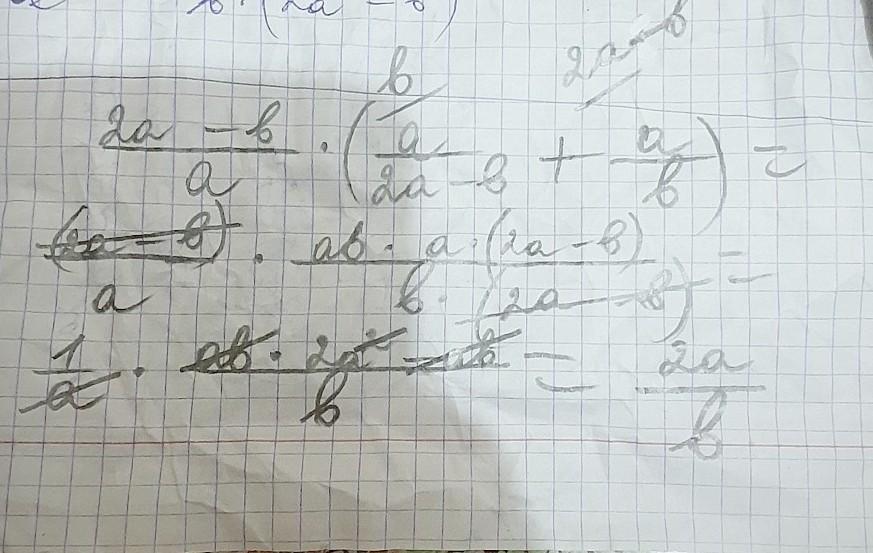 b · (2a - b)
b 2a - b
2a - b / a · (a / 2a - b + a / b) =
(2a - b) / a · ab · a · (2a - b) / b · (2a - b) =
1 / a · ab · 2a² - ab / b = 2a / b